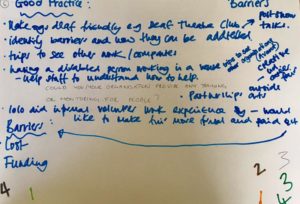 Good Practice:
Barriers
• Make org deaf friendly eg Deaf Theatre Club
post show talks.
• identify barriers and how they can be addressed
• trips to see other work/companies
• having a disabled person working in a venue
trips to see other organisations
- help staff to understand how to help.
COULD YOU/YOUR ORGANISATION PROVIDE ANY TRAINING
OR MONITORING FOR PEOPLE?
• Partnerships
outside arts
• aid informal volunteer work experience - would
like to make this more formal and paid
Barriers:
Cost
Funding
4
1
2
3
3
4